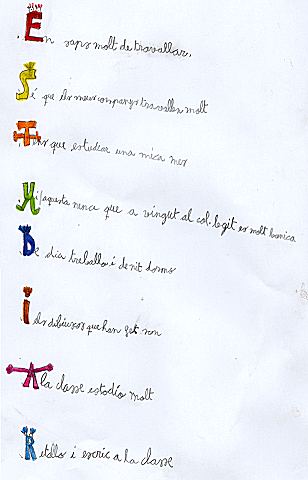 En saps molt de travallar,
Sé que els meus companys travallen molt
Tens que estudiar una mica mes
Ui! aquesta nena que a vingut al col·legit es molt bonica
De dia treballo i de nit dormo
i els dibuixos que han fet son
A la classe estodio molt
Retallo i escric a la classe